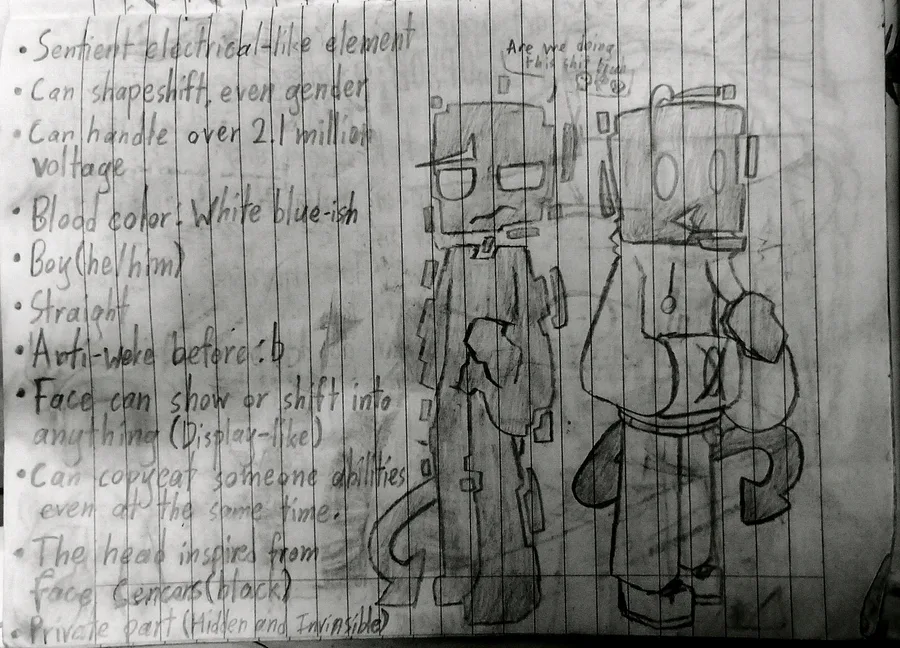 • Sentient electrical-like element
• Can shapeshift, even gender
• Can handle over 2.1 million
voltage
• Blood color: White blue-ish
• Boy(he/him)
• Straight
• Anti-woke before :b
• Face can show or shift into
anything (Display-like)
• Can copycat someone abilities
even at the same time.
• The head inspired from
face Cencors(black)
• Private part (Hidden and Invinsible)
Are we doing
this shit